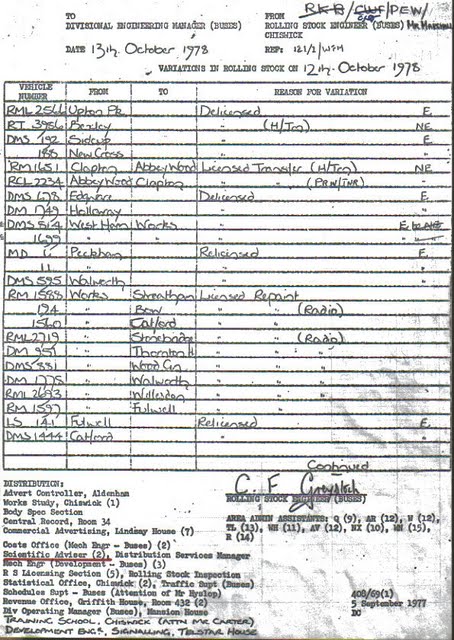 TO FROM RKB/CWF/PEW/
DIVISIONAL ENGINEERING MANAGER (BUSES) ROLLING STOCK ENGINEER (BUSES) Mr Marshall
CHISWICK
DATE 13th. October 1978 REF: 121/1/WFH
VARIATIONS IN ROLLING STOCK ON 12th. October 1978
VEHICLE NUMBER FROM TO REASON FOR VARIATION
RML 2566 Upton Pk. Delicensed E
RT. 3986 Bexley " (H/Trn) NE
DMS 192 Sidcup " E
188 New Cross " "
RM 1651 Clapton Abbey Wood Licensed Transfer (H/Trn) NE
RCL 2234 Abbey Wood Clapton " (PRN/TNR) "
DMS 678 Edgware Delicensed E
DM 1749 Holloway " "
DMS 814 West Ham Works " E
1699 " " " "
MD 6 Peckham Relicensed E
11 " " "
DMS 595 Walworth " "
RM 1588 Works Streatham Licensed Repaint
194 " Bow " (Radio)
1560 " Catford "
RML 2719 " Stonebridge " (Radio)
DM 951 " Thornton H " "
DMS 831 " Wood Gn " "
DM 1778 " Walworth " "
RML 2693 " Willesden " "
RM 1597 " Fulwell " "
LS 141 Fulwell Relicensed E
DMS 1444 Catford " "
Continued
DISTRIBUTION: C. F. Greystock
Advert Controller, Aldenham ROLLING STOCK ENGINEER (BUSES)
Works Study, Chiswick (1)
Body Spec Section
Central Record, Room 34 AREA ADMIN ASSISTANTS: Q (9), AR (12), W (12),
Commercial Advertising, Lindsay House (7) TL (13), WH (11), AV (12), NX (10), MN (15),
R (14)
Costs Office (Mech Engr - Buses) (2)
Scientific Adviser (2), Distribution Services Manager
Mech Engr (Development - Buses) (3)
R S Licensing Section (5), Rolling Stock Inspection
Statistical Office, Chiswick (2), Traffic Supt (Buses)
Schedules Supt - Buses (Attention of Mr Hyslop) 408/69(1)
Revenue Office, Griffith House, Room 432 (2) 5 September 1977
Div Operating Manager (Buses), Mansion House DC
TRAINING SCHOOL, CHISWICK (ATTN MR CARTER)
DEVELOPMENT ENG'S, SIGNALLING, TELSTAR HOUSE